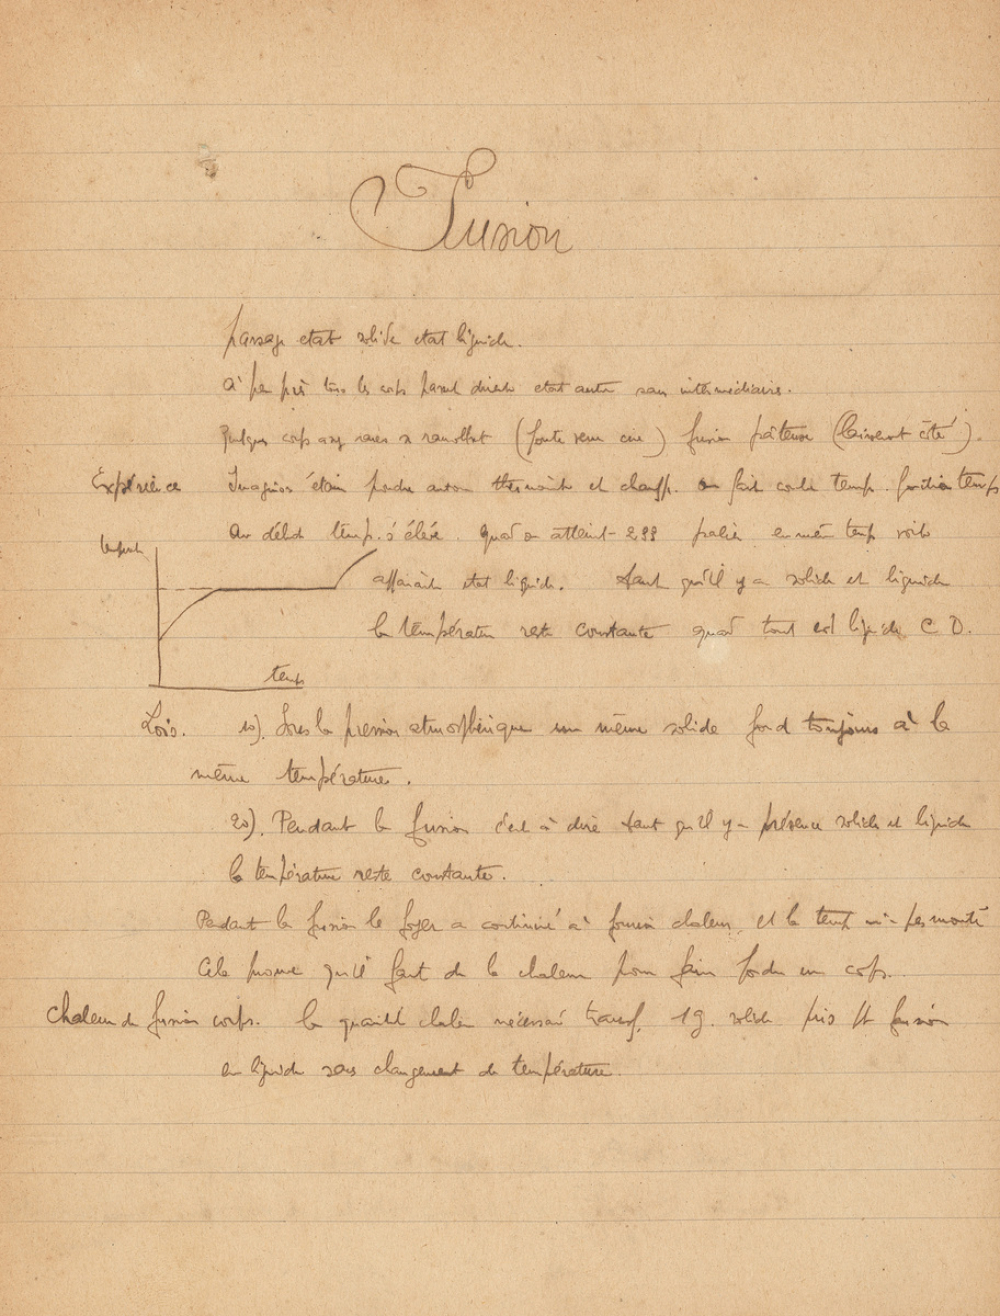 Fusion
passage etat solide etat liquide.
à peu près tous les corps passent directe etat autre sans intermédiaire.
Quelques corps assez rares se ramollissent (fonte verre cire) fusion pâteuse (laissent côté).
Expérience Imaginons étain poudre autour thermomètre et chauff. on fait courbe temp. fonction temps
Au début temp. s'élève. quand on atteint 233 palier en même temps voit
temps
apparaître etat liquide. tant qu'il y a solide et liquide
la température reste constante quand tout est liquide C D.
temps
Lois. 1o). Sous la pression atmosphérique un même solide fond toujours à la
même température.
2o). Pendant la fusion c'est à dire tant qu'il y a présence solide et liquide
la température reste constante.
Pendant la fusion le foyer a continué à fournir chaleur et la temp n'a pas monté
Cela prouve qu'il faut de la chaleur pour faire fondre un corps.
Chaleur de fusion corps. la quantité chaleur nécessaire transf. 1g. solide pris pt fusion
en liquide sans changement de température.